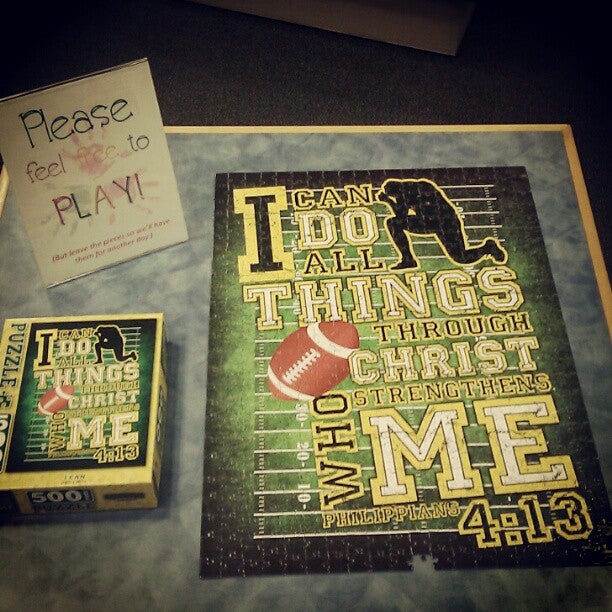 Please
feel free to
PLAY!
(But leave the pieces so we'll have
them for another day.)
I CAN
DO
ALL
THINGS
THROUGH
CHRIST
WHO
STRENGTHENS
ME
PHILIPPIANS
4:13
PUZZLE
I CAN
DO
ALL
THINGS
THROUGH
CHRIST
WHO
STRENGTHENS
ME
4:13
I CAN
500
PUZZLE